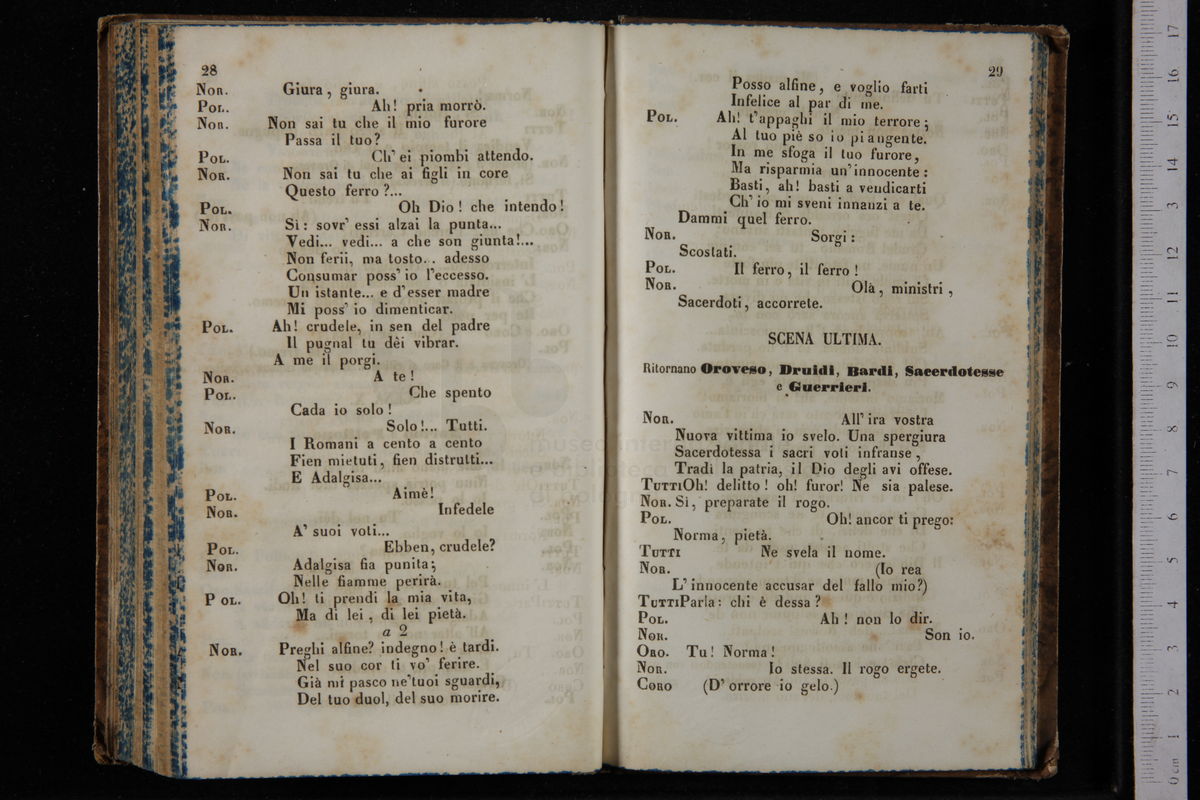 28
NOR. Giura, giura.
POL. Ah! pria morrò.
NOR. Non sai tu che il mio furore
Passa il tuo?
POL. Ch' ei piombi attendo.
NOR. Non sai tu che ai figli in core
Questo ferro?...
POL. Oh Dio! che intendo!
NOR. Sì: sovr' essi alzai la punta...
Vedi... vedi... a che son giunta!...
Non ferii, ma tosto... adesso
Consumar poss' io l'eccesso.
Un istante... e d'esser madre
Mi poss' io dimenticar.
POL. Ah! crudele, in sen del padre
Il pugnal tu dêi vibrar.
A me il porgi.
NOR. A te!
POL. Che spento
Cada io solo!
NOR. Solo!... Tutti.
I Romani a cento a cento
Fien mietuti, fien distrutti...
E Adalgisa...
POL. Aimè!
NOR. Infedele
A' suoi voti...
POL. Ebben, crudele?
NOR. Adalgisa fia punita;
Nelle fiamme perirà.
POL. Oh! ti prendi la mia vita,
Ma di lei, di lei pietà.
a 2
NOR. Preghi alfine? indegno! è tardi.
Nel suo cor ti vo' ferire.
Già mi pasco ne'tuoi sguardi,
Del tuo duol, del suo morire.
29
Posso alfine, e voglio farti
Infelice al par di me.
POL. Ah! t'appaghi il mio terrore;
Al tuo piè so io piangente.
In me sfoga il tuo furore,
Ma risparmia un'innocente:
Basti, ah! basti a vendicarti
Ch' io mi sveni innanzi a te.
Dammi quel ferro.
NOR. Sorgi:
Scostati.
POL. Il ferro, il ferro!
NOR. Olà, ministri,
Sacerdoti, accorrete.
SCENA ULTIMA.
Ritornano Oroveso, Druidi, Bardi, Sacerdotesse
e Guerrieri.
NOR. All' ira vostra
Nuova vittima io svelo. Una spergiura
Sacerdotessa i sacri voti infranse,
Tradì la patria, il Dio degli avi offese.
TUTTI Oh! delitto! oh! furor! Ne sia palese.
NOR. Sì, preparate il rogo.
POL. Oh! ancor ti prego:
Norma, pietà.
TUTTI Ne svela il nome.
NOR. (Io rea
L' innocente accusar del fallo mio?)
TUTTI Parla: chi è dessa?
POL. Ah! non lo dir.
NOR. Son io.
ORO. Tu! Norma!
NOR. Io stessa. Il rogo ergete.
CORO (D' orrore io gelo.)